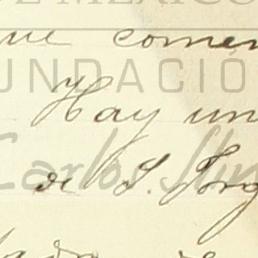 DE MÉXICO
que comen
FUNDACIÓ
Hay un
Carlos Slim
de S. Jorg